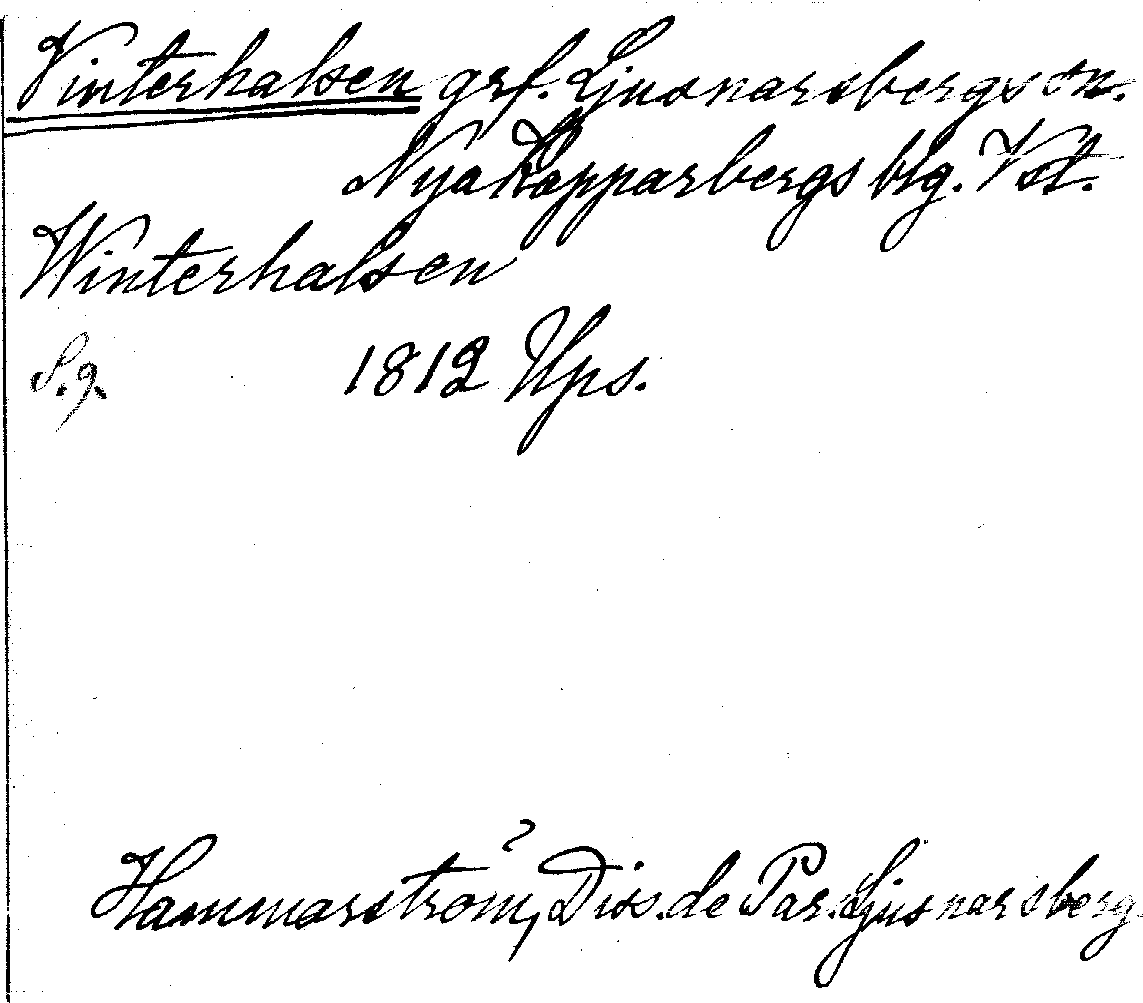 Vinterhalsen grf. Ljusnarsbergs sn.
Nya Kopparbergs blg. Vstl.
Winterhalsen
S.g. 1812 Ups.
Hammarström, Diss. de Par. Ljusnarsberg